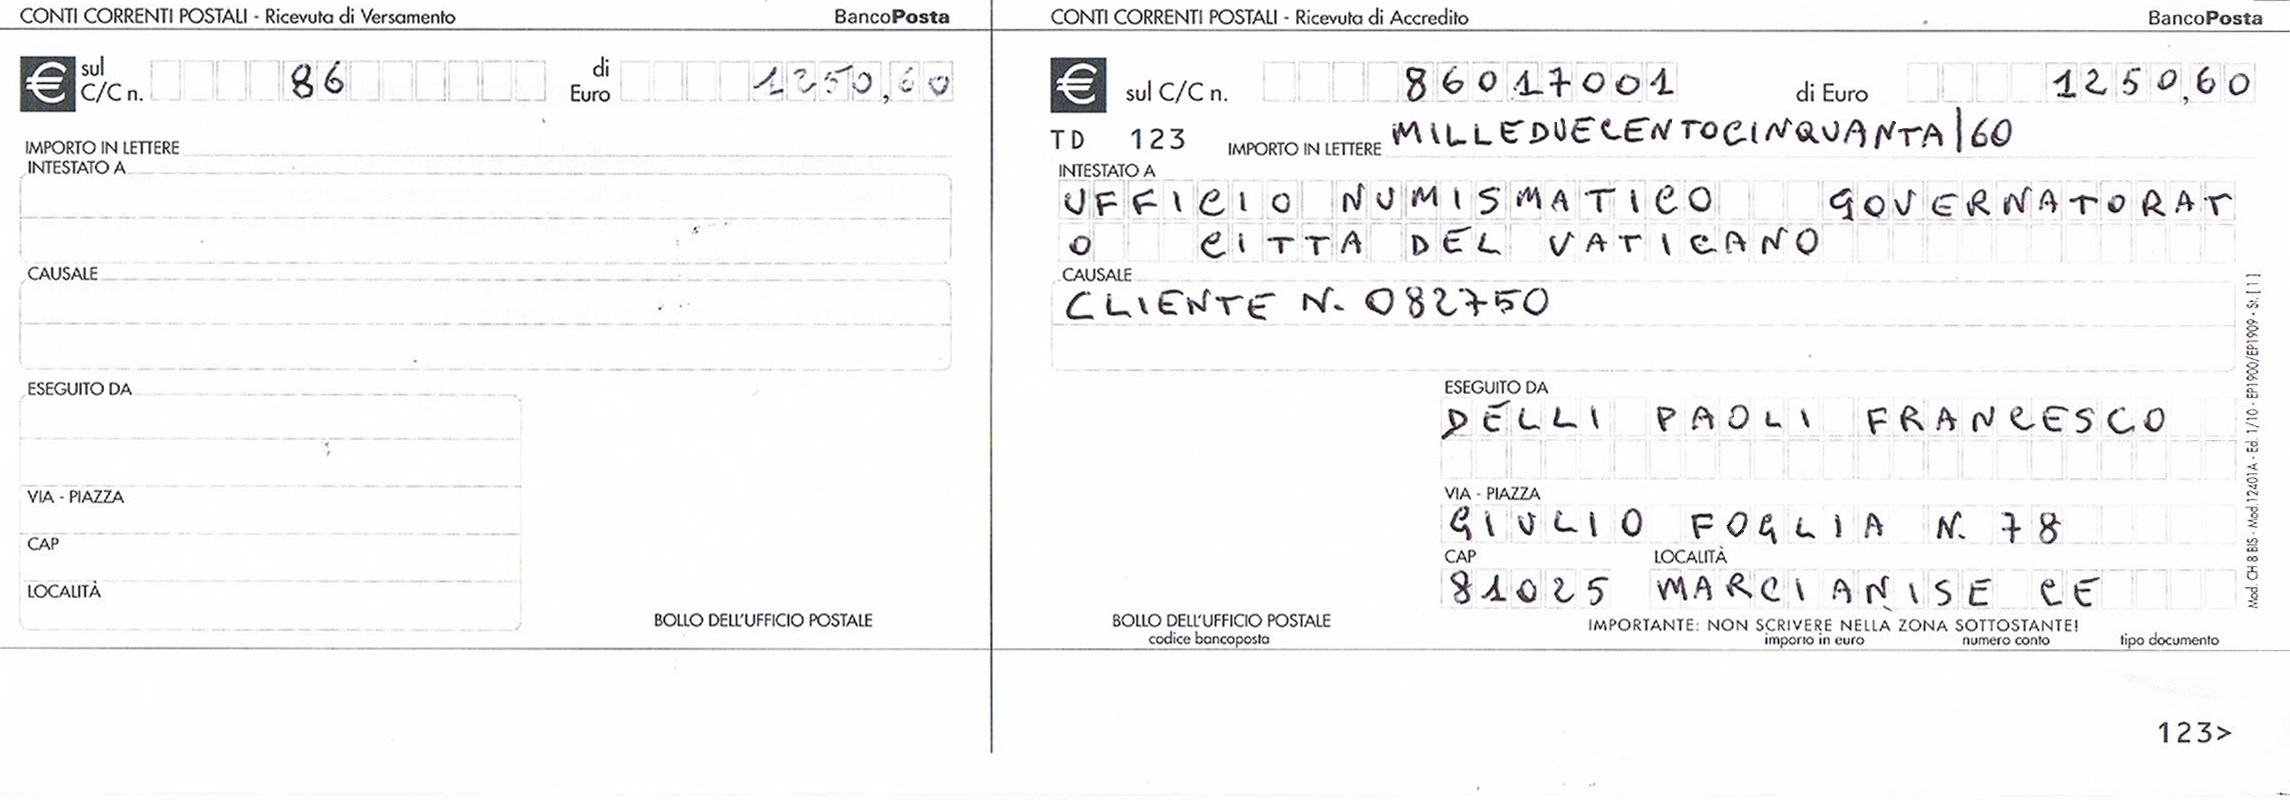 CONTI CORRENTI POSTALI - Ricevuta di Versamento BancoPosta
€ sul C/C n. 86 di Euro 1250,60
IMPORTO IN LETTERE
INTESTATO A
CAUSALE
ESEGUITO DA
VIA - PIAZZA
CAP
LOCALITÀ
BOLLO DELL'UFFICIO POSTALE
CONTI CORRENTI POSTALI - Ricevuta di Accredito BancoPosta
€ sul C/C n. 86017001 di Euro 1250,60
TD 123 IMPORTO IN LETTERE MILLEDUECENTOCINQUANTA|60
INTESTATO A
UFFICIO NUMISMATICO GOVERNATORAT
O CITTA DEL VATICANO
CAUSALE
CLIENTE N. 082750
ESEGUITO DA
DELLI PAOLI FRANCESCO
VIA - PIAZZA
GIULIO FOGLIA N. 78
CAP LOCALITÀ
81025 MARCIANISE CE
BOLLO DELL'UFFICIO POSTALE
codice bancoposta
IMPORTANTE: NON SCRIVERE NELLA ZONA SOTTOSTANTE!
importo in euro numero conto tipo documento
Mod. CH 8 BIS - Mod.112401A - Ed. 1/10 - EP1900/EP1909 - St. [1]
123>